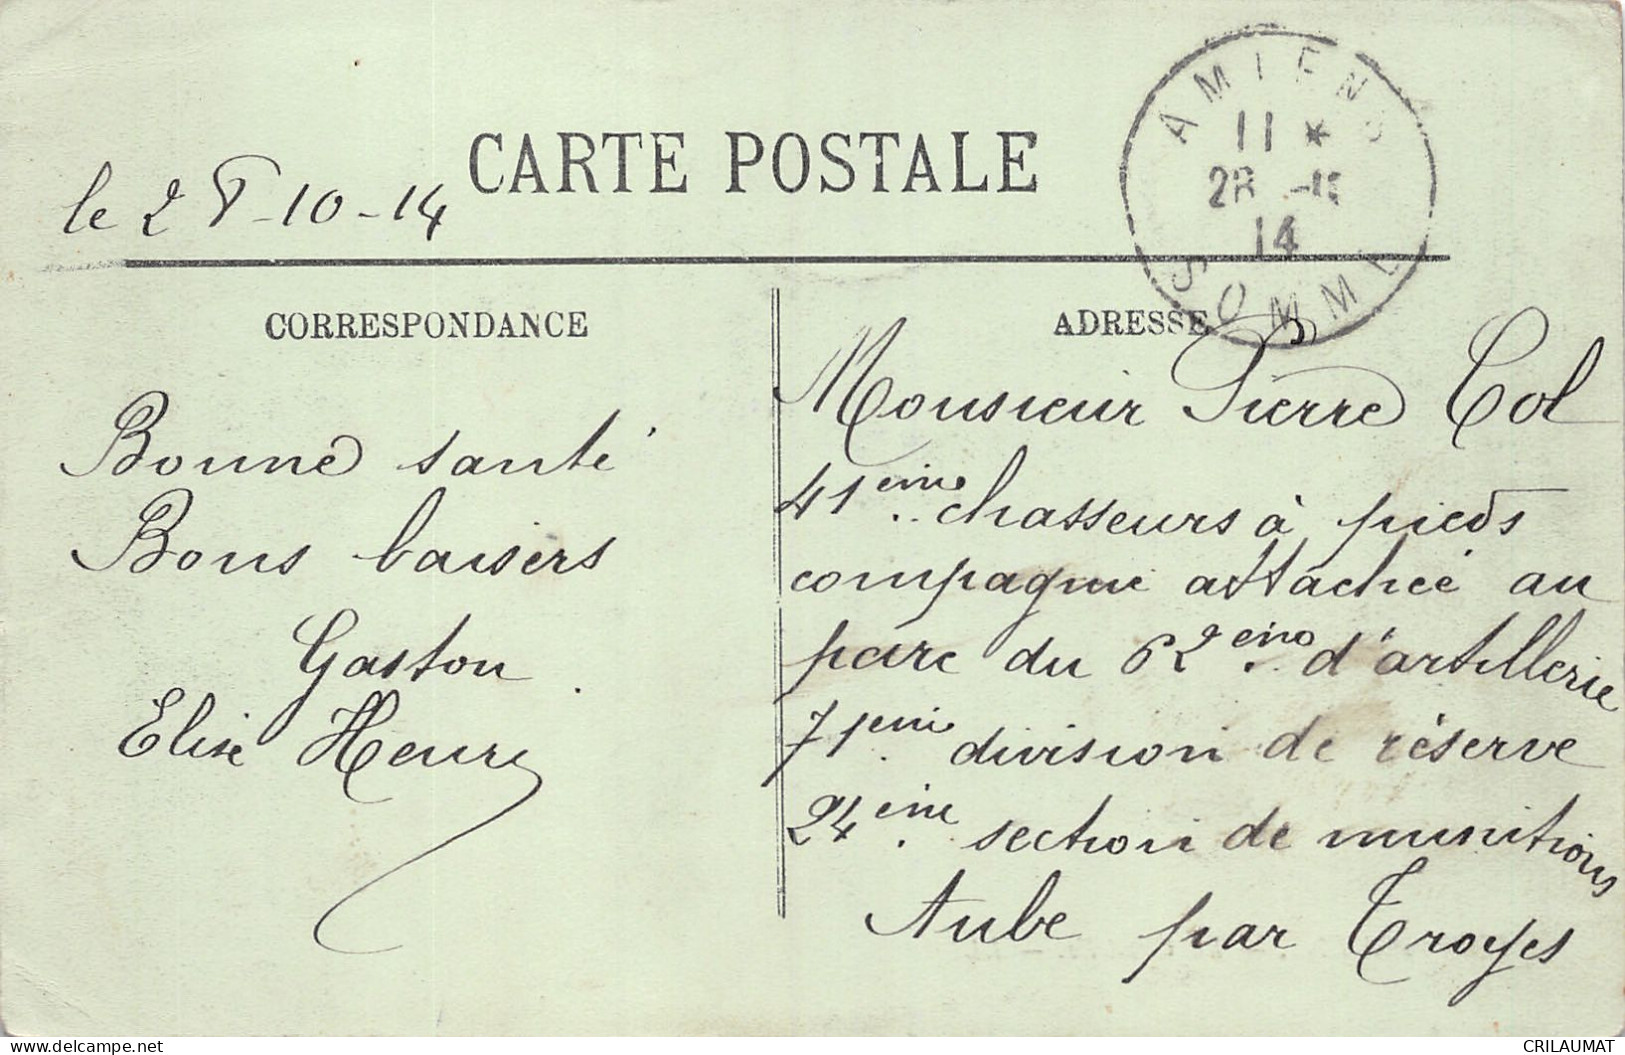 CARTE POSTALE
AMIENS
11 *
28 -10
14
SOMME
le 28-10-14
CORRESPONDANCE
Bonne santé
Bons baisers
Gaston
Elise Henri
ADRESSE
Monsieur Pierre Col
41ème chasseurs à pieds
compagnie attachée au
parc du 62ème d'artillerie
71ème division de réserve
24ème section de munitions
Aube par Troyes
www.delcampe.net
CRILAUMAT